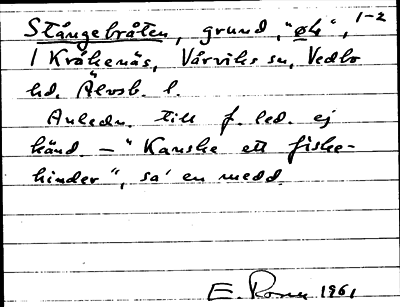 Stångebråten, grund, "øk", 1-2
1 Kråkenäs, Vårviks sn, Vedbo
hd. Älvsb. l.
Anledn. till f. led. ej
känd. – "Kanske ett fiske-
hinder", sa' en medd.
E. Rosen 1961